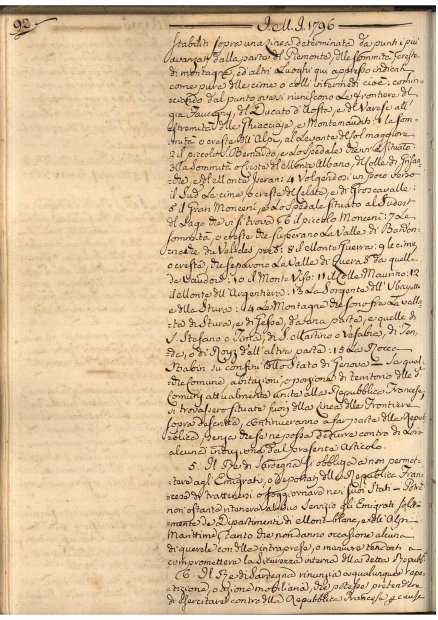 92
I. M. I. 1796
Stabiliti sopra una Linea determinata da punti i più
avanzati dalla parte di Piemonte, delle sommità, creste
di montagne, ed altri Luoghi qui appresso indicati
come pure delle cime o colli intermedi cioè: comin-
ciando dal punto ove si riuniscono le frontiere del
già Faucigny, del Ducato d'Aosta, e del Varese all'
estremità delle Ghiacciaje, e Montemaudit: 1 la som-
mità o creste dell'Alpi, al Levante del Col maggiore
2 il piccolo S. Bernardo, e Lo Spedale che vi è situato
la sommità, o creste del Monte Albano, del Colle di
che, e del Monte 4 Volgendosi un poco verso
il Sud Le cime, o creste di Celate, e di Groscavallo:
5 il Gran Monceni, e Lo Spedale situato al Sudost
del Lago che vi si trova: 6 il piccolo Monceni: 7 Le
sommità, o creste che separano La Valle di Bardon-
neche, da 8 il Monte Ginevra: 9 le cime
o creste, che separono La Valle di Queras da quelle
de Vaudois: 10 il Monte Viso: 11 il Colle Maurino: 12
il Monte dell'Argentiera: 13 La Sorgente dell'Ubayette
e della Stura: 14 Le Montagne che sono fra La Valla-
ta di Stura, e di Gesso, d'una parte, e quelle di
S. Stefano o Tinea, di S. Martino o Vesubia, di Ten-
da, o di Roya dall'altra parte: 15 La Rocca
Barbon su confini dello Stato di Genova — Se qual-
che comune, abitazioni, o porzione di territorio delle d.e
Comuni attualmente unite alla Repubblica Francese,
si trovassero situate fuori della Linea delle Frontiere
sopra descritta, continueranno a far parte della Repub-
blica, senza che se ne possa dedurre contro di Loro
alcuna induzione dal presente Articolo.
5. Il Re di Sardegna si obbliga a non permet-
tere agl'Emigrati, o Deportati della Repubblica Fran-
cese di trattenersi o soggiornare nei suoi Stati — Potrà
non ostante ritenere al suo servizio gli Emigrati sola-
mente de Dipartimenti di Mont-blanc, e dell'Alpi
Marittime, tanto che non danno occasione alcuna
di querele con delle intraprese, o manovre tendenti a
compromettere la sicurezza interna della detta Repubb.
6. Il Re di Sardegna rinunzia a qualunque repe-
tizione, o azione mobiliaria, che potesse pretendere
di esercitare contro della Repubblica Francese p cause